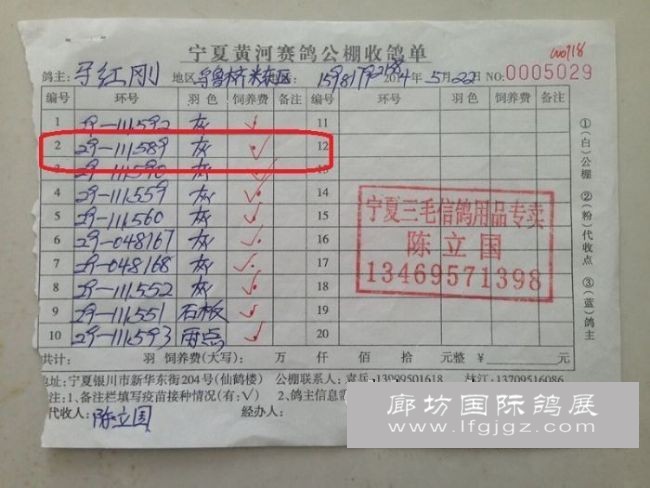 宁夏黄河赛鸽公棚收鸽单
wo718
鸽主: 马红刚 地区 年 5月22日 NO: 0005029
编号 环号 羽色 饲养费 备注 编号 环号 羽色 饲养费 备注
1 29-111592 灰 ✓ 11
2 29-111589 灰 ✓ 12
3 29-111590 灰 ✓ 13
4 29-111559 灰 ✓ 14
5 29-111560 灰 ✓ 15
6 29-048167 灰 ✓ 16
7 29-048168 灰 ✓ 17
8 29-111552 灰 ✓ 18
9 29-111551 石板 ✓ 19
10 29-111593 雨点 ✓ 20
宁夏三毛信鸽用品专卖
陈立国
13469571398
①(白)公棚 ②(粉)代收点 ③(蓝)鸽主
共计: 羽 饲养费(大写): 万 仟 佰 拾 元整 ¥ 元
地址:宁夏银川市新华东街204号(仙鹤楼) 公棚联系人: 13709516086
备注:1、备注栏填写疫苗接种情况(有:√) 2、鸽主信息
代收人: 陈立国 经办人:
廊坊国际鸽展
www.lfgjgz.com